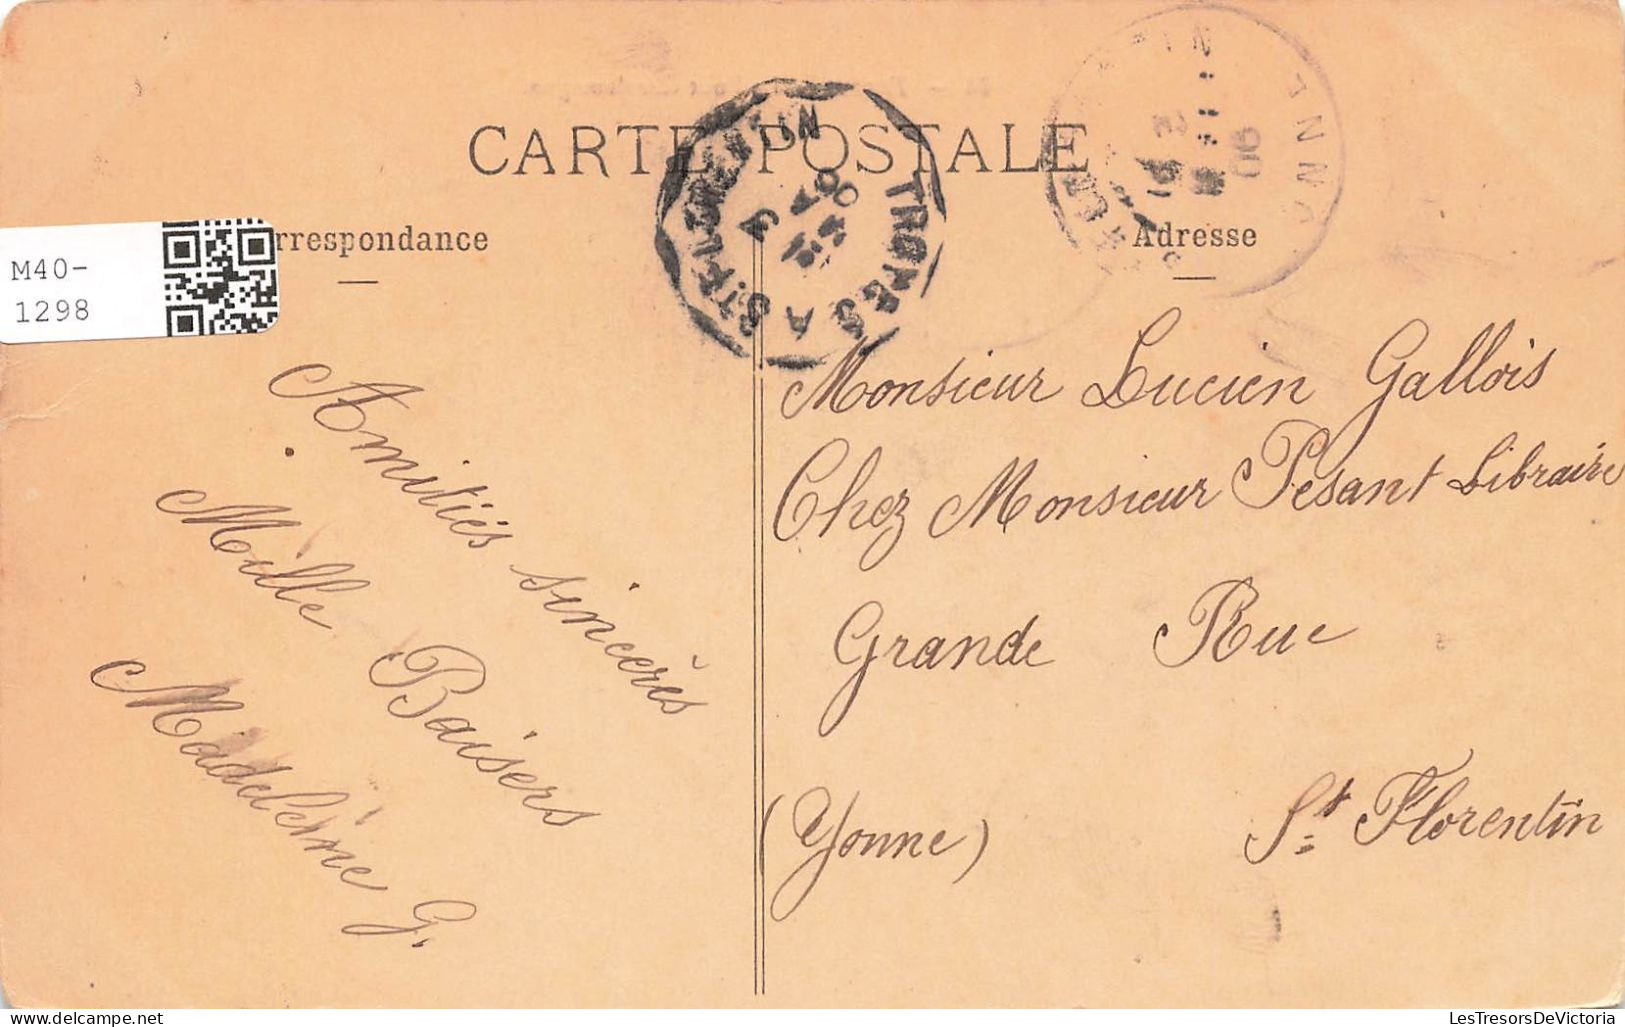 CARTE POSTALE
rrespondance
Adresse
M40-
1298
TROYES A ST FLORENTIN
YONNE
Amitiés sincerès
Mille Baisers
Madeleine G.
Monsieur Lucien Gallois
Chez Monsieur Pesant Libraire
Grande Rue
(Yonne) St Florentin
LesTresorsDeVictoria
www.delcampe.net